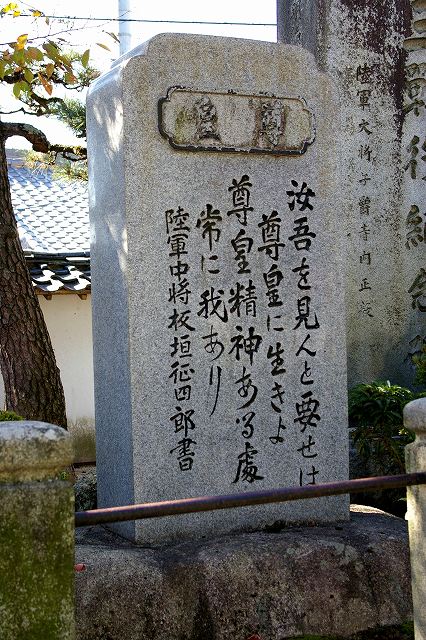 戰役紀念
陸軍大将子爵寺内正毅
汝吾を見んと要せは
尊皇に生きよ
尊皇精神ある處
常に我あり
陸軍中将板垣征四郎書